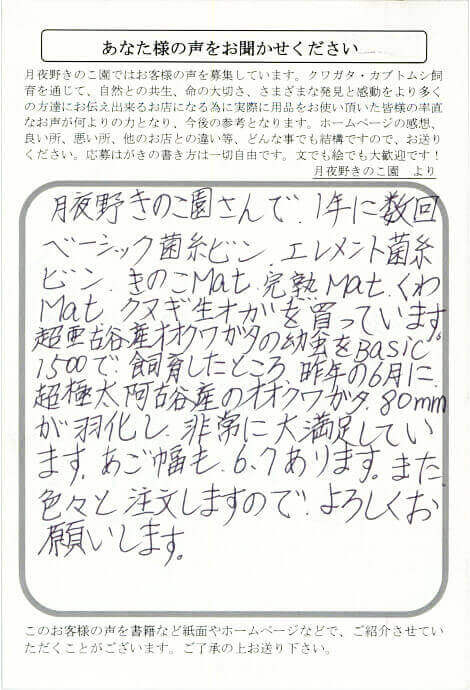 あなた様の声をお聞かせください
月夜野きのこ園ではお客様の声を募集しています。クワガタ・カブトムシ飼
育を通じて、自然との共生、命の大切さ、さまざまな発見と感動をより多く
の方達にお伝え出来るお店になる為に実際に用品をお使い頂いた皆様の率直
なお声が何よりの力となり、今後の参考となります。ホームページの感想、
良い所、悪い所、他のお店との違い等、どんな事でも結構ですので、お送り
ください。応募はがきの書き方は一切自由です。文でも絵でも大歓迎です！
月夜野きのこ園　より
月夜野きのこ園さんで、1年に数回
ベーシック菌糸ビン、エレメント菌糸
ビン、きのこMat、完熟Mat、くわ
Mat、クヌギ生オガを買っています。
超 古谷産オオクワガタの幼虫をBasic
1500で、飼育したところ、昨年の6月に、
超極太阿古谷産のオオクワガタ、80mm
が羽化し、非常に大満足してい
ます。あご幅も、6.7あります。また、
色々と注文しますので、よろしくお
願いします。
このお客様の声を書籍など紙面やホームページなどで、ご紹介させてい
ただくことがございます。ご了承の上お送り下さい。